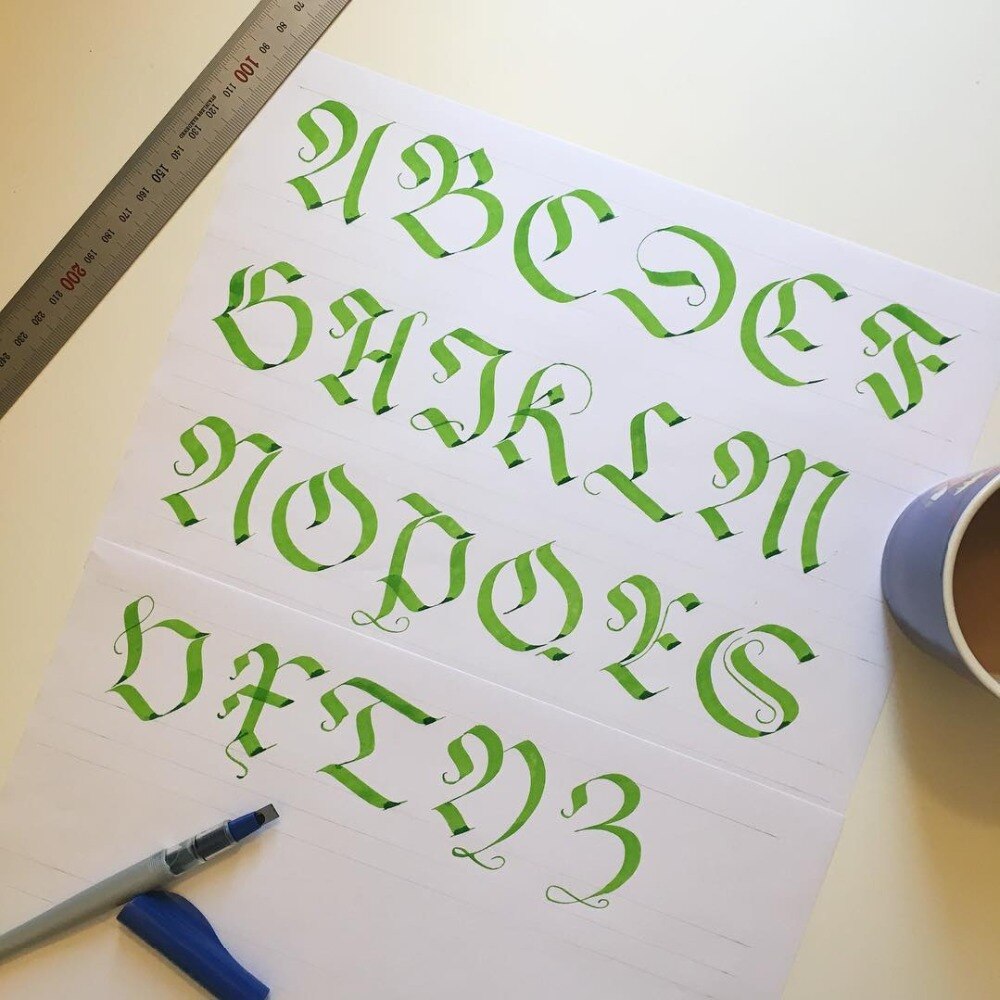 A B C D E F
G H I K L M
N O P Q R S
V X T Y Z
70 80 90 100 110 120 130 140 150 160 170 180 190 200 210 220 230 240
STAINLESS HARDENED